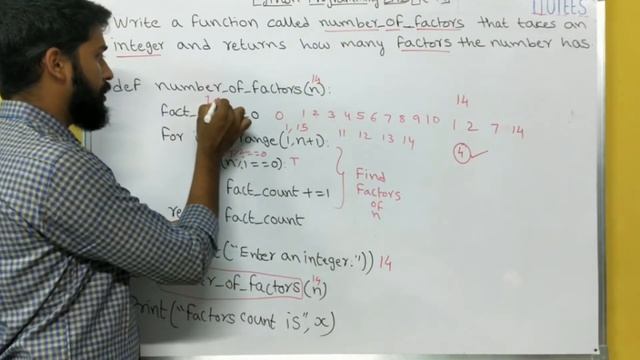 Python Programming
11UTEES
Write a function called number_of_factors that takes an
integer and returns how many factors the number has.
14
def number_of_factors(n):
14
fact_ 0 0 1 2 3 4 5 6 7 8 9 10 1 2 7 14
1, 15 11 12 13 14
for range(1, n+1):
4
(n%1==0): T
fact_count +=1
Find
Factors
of
n
re fact_count
("Enter an integer:")) 14
14
er_of_factors(n)
print("factors count is", x)